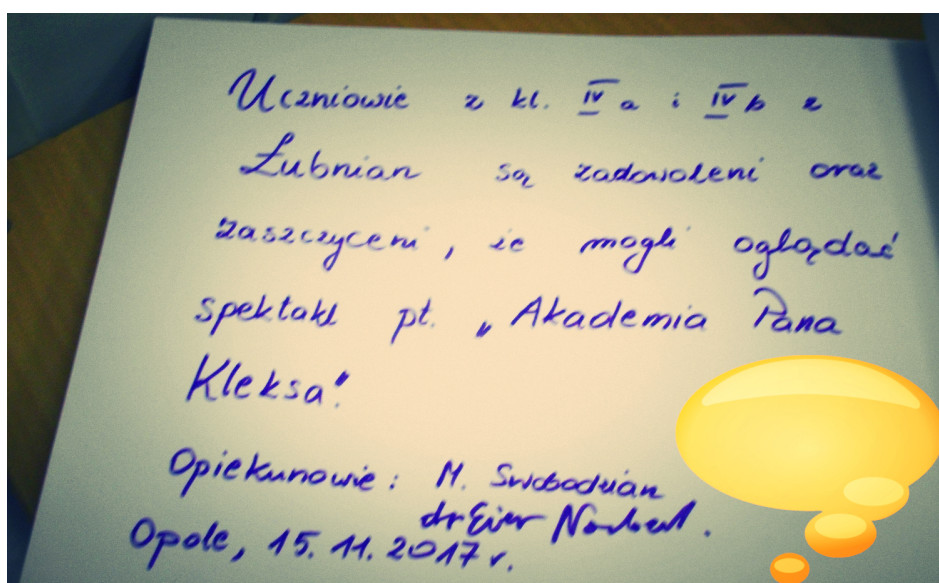 Uczniowie z kl. IV a i IV b z
Łubnian są zadowoleni oraz
zaszczyceni, że mogli oglądać
spektakl pt. „Akademia Pana
Kleksa".
Opiekunowie: M. Swobodzian
dr Norbert.
Opole, 15.11.2017 r.